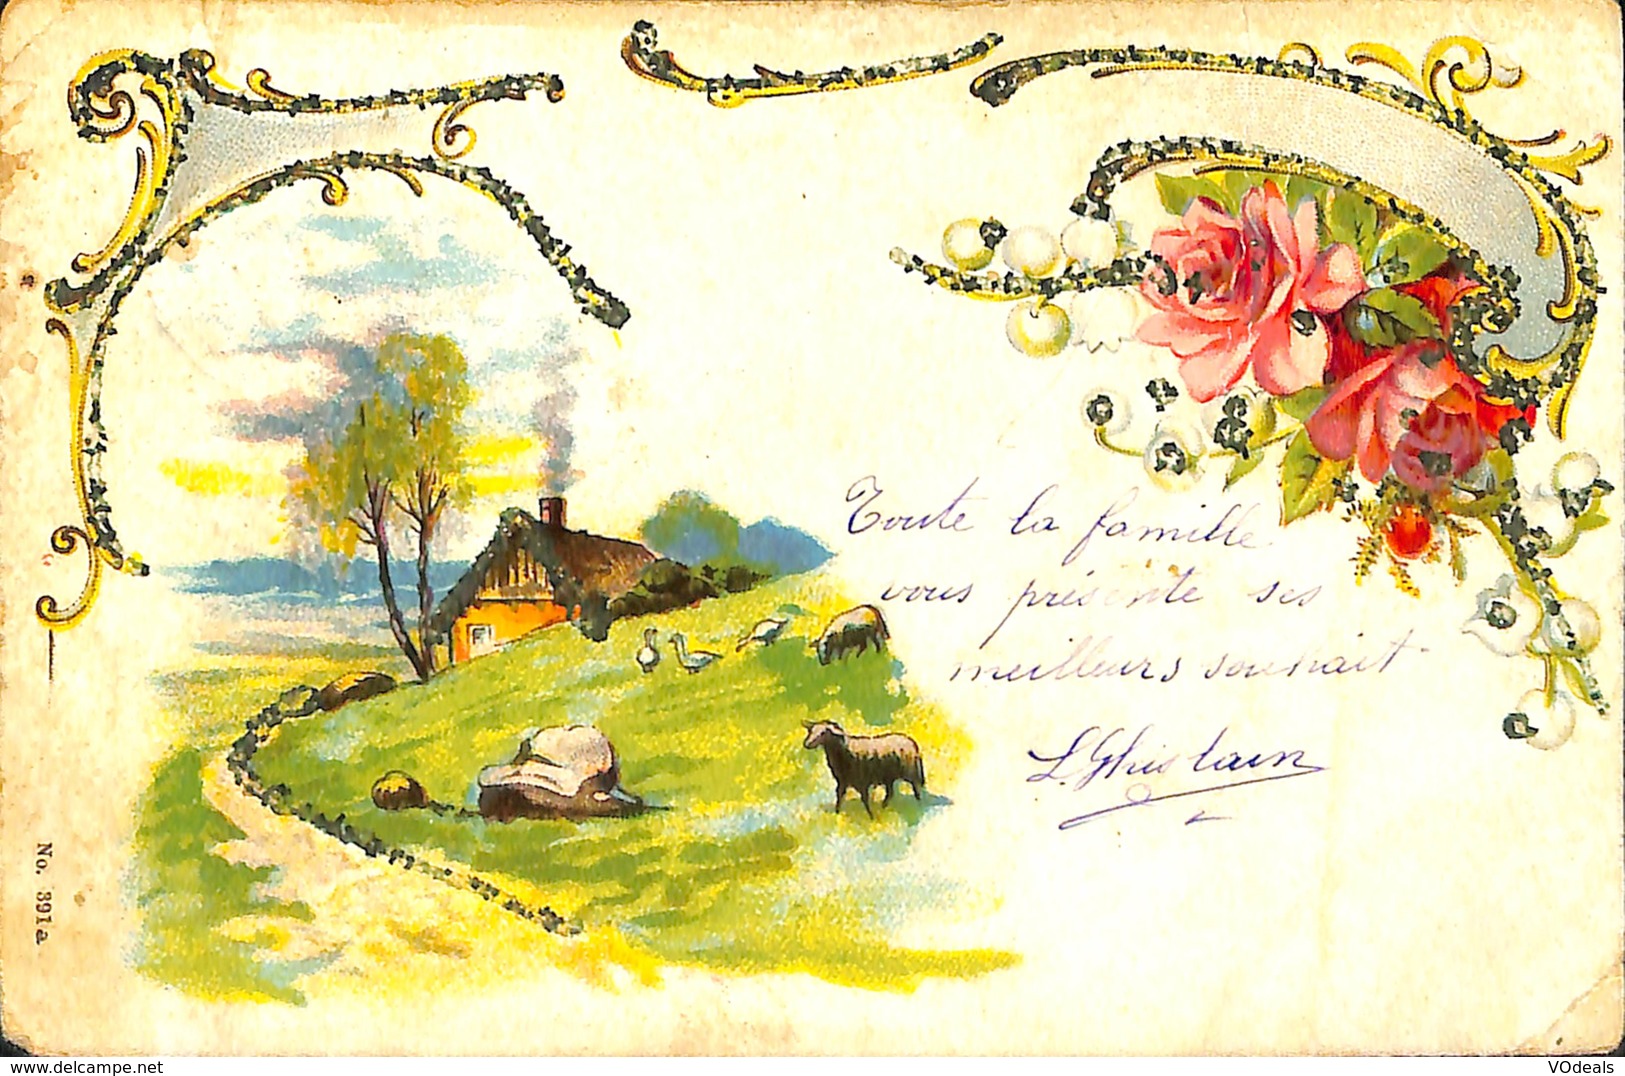 Toute la famille
vous présente ses
meilleurs souhait
L. Ghislain
No. 391a
© VOdeals